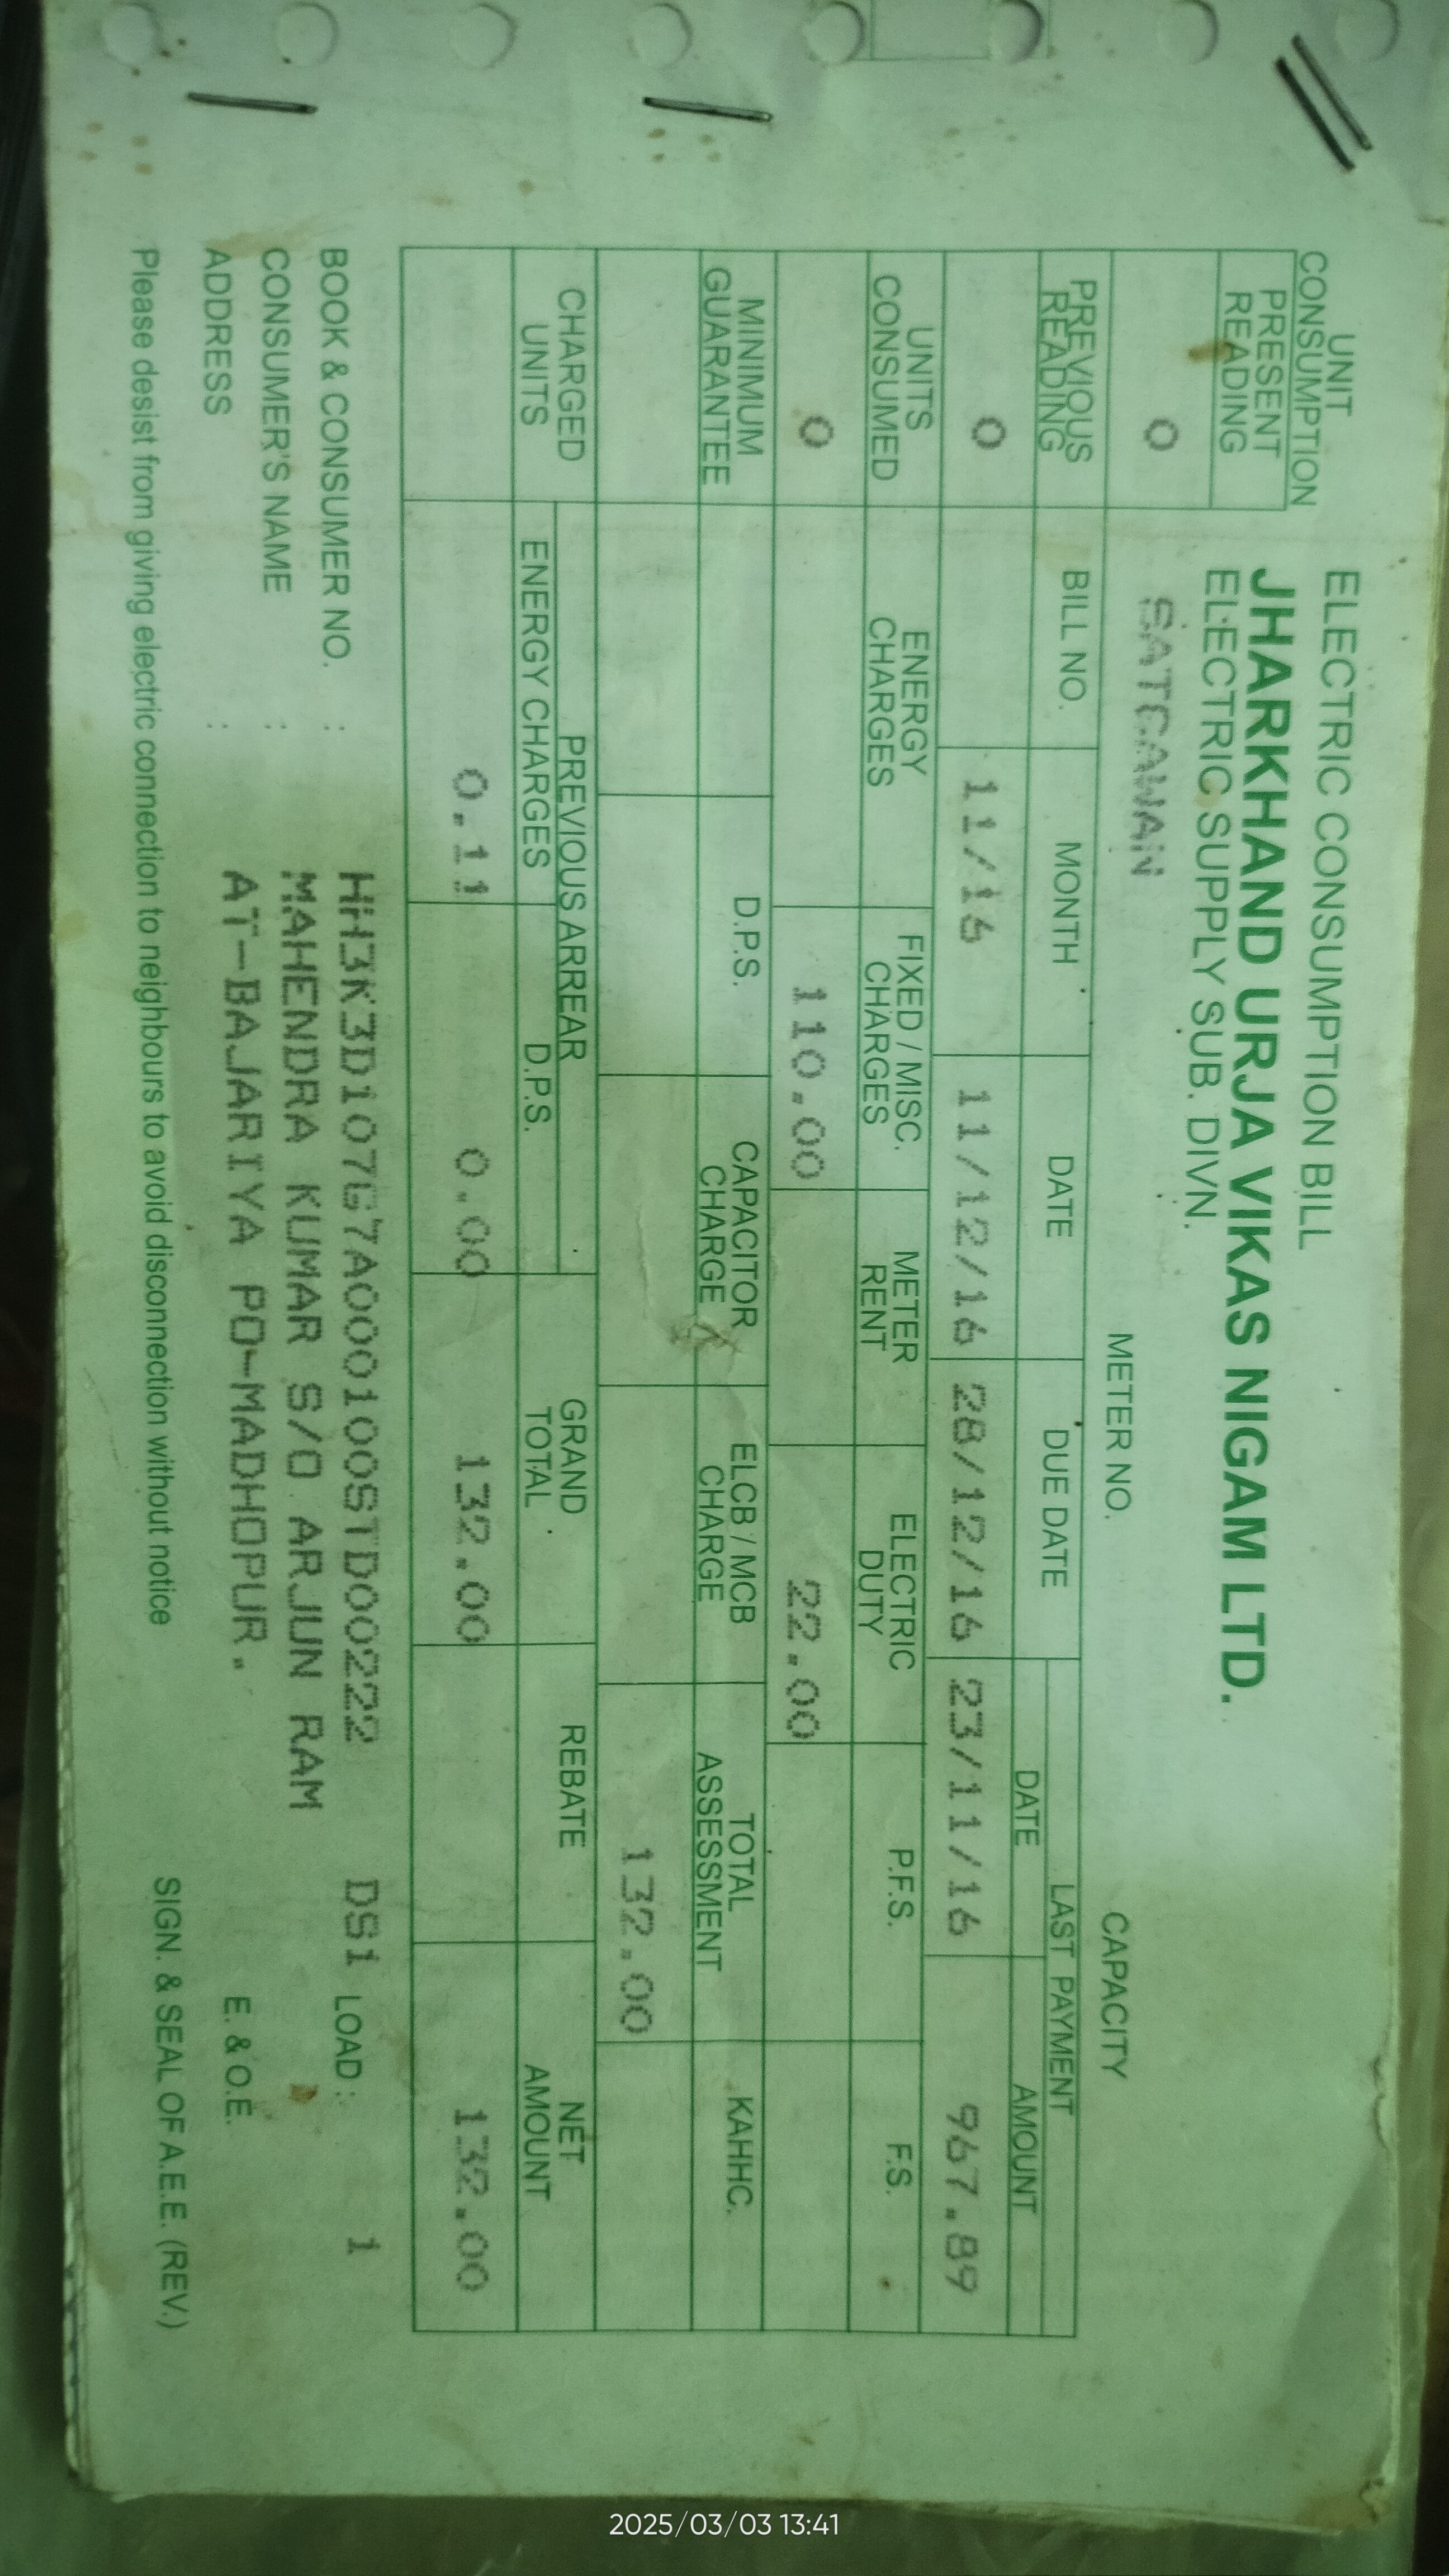 ELECTRIC CONSUMPTION BILL
JHARKHAND URJA VIKAS NIGAM LTD.
ELECTRIC SUPPLY SUB. DIVN.
UNIT CONSUMPTION
PRESENT READING
SATGAWAN METER NO. CAPACITY
0
PREVIOUS READING BILL NO. MONTH DATE DUE DATE LAST PAYMENT
DATE AMOUNT
0 11/16 11/12/16 28/12/16 23/11/16 967.89
UNITS CONSUMED ENERGY CHARGES FIXED / MISC. CHARGES METER RENT ELECTRIC DUTY P.F.S. F.S.
0 110.00 22.00
MINIMUM GUARANTEE D.P.S. CAPACITOR CHARGE ELCB / MCB CHARGE TOTAL ASSESSMENT KAHHC.
132.00
CHARGED UNITS PREVIOUS ARREAR GRAND TOTAL REBATE NET AMOUNT
ENERGY CHARGES D.P.S.
0.11 0.00 132.00 132.00
BOOK & CONSUMER NO. : HH3K3D107G7A000100STD00222 DS1 LOAD : 1
CONSUMER'S NAME : MAHENDRA KUMAR S/O ARJUN RAM
ADDRESS : AT-BAJARIYA PO-MADHOPUR. E. & O.E.
Please desist from giving electric connection to neighbours to avoid disconnection without notice SIGN. & SEAL OF A.E.E. (REV.)
2025/03/03 13:41